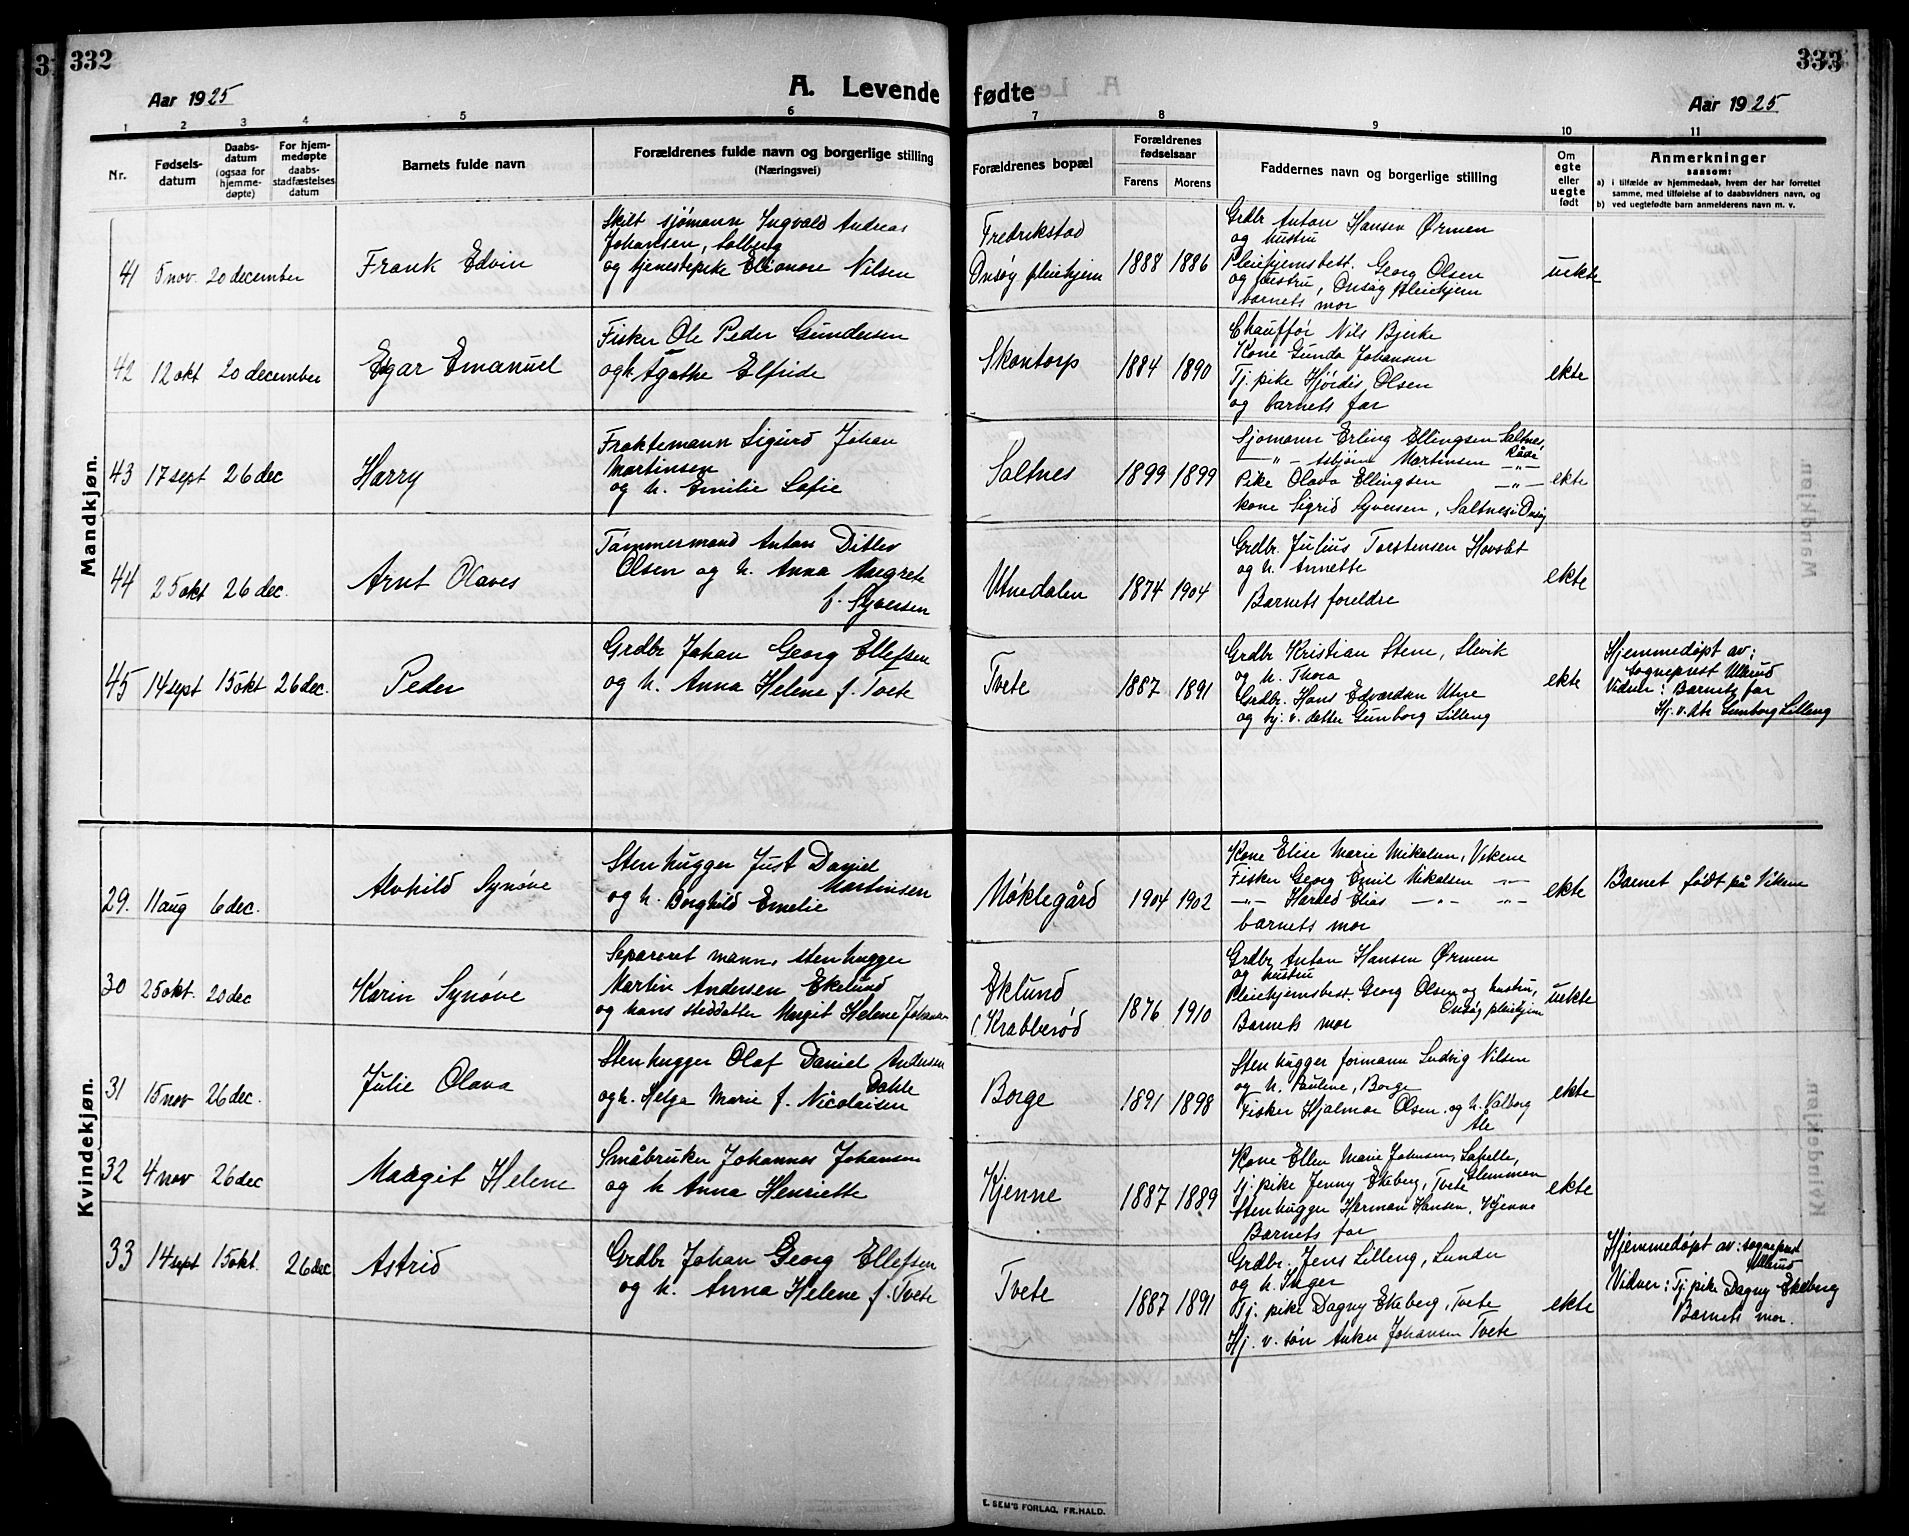 332
333
Aar 1925
A. Levende fødte
Aar 1925
1 2 3 4 5 6 7 8 9 10 11
Nr.
Fødsels-
datum
Daabs-
datum
(ogsaa for
hjemme-
døpte)
For hjem-
medøpte
daabs-
stadfæstelses
datum
Barnets fulde navn
Forældrenes fulde navn og borgerlige stilling
(Næringsvei)
Forældrenes bopæl
Forældrenes
fødselsaar
Farens
Morens
Faddernes navn og borgerlige stilling
Om
egte
eller
uegte
født
Anmerkninger
saasom:
a) i tilfælde av hjemmedaab, hvem der har forrettet
samme, med tilføielse av to daabsvidners navn, og
b) ved uegtefødte barn anmelderens navn m. v.
Mandkjøn.
41 5 nov. 20 december
Frank Edvin
Skilt sjømann Ingvald Andreas
Johansen, Solberg
og tjenestepike Elionore Nilsen
Fredrikstad
Onsøy pleiehjem
1888 1886
Grdbr Anton Hansen Ørmen
og hustru
Pleiehjemsbest. Georg Olsen
og hustru, Onsøy Pleiehjem
barnets mor
uekte
42 12 okt 20 december
Edgar Emanuel
Fisker Ole Peder Gundersen
og h. Agathe Elfride
Skontorp
1884 1890
Chauffør Nils Bjerke
Kone Gunda Johansen
Tj. pike Hjørdis Olsen
og barnets far
ekte
43 17 sept 26 dec
Harry
Fraktemann Sigurd Johan
Martinsen
og h. Emilie Sofie
Saltnes
1899 1899
Sjømann Erling Ellingsen Saltnes,
Råde
—"— Asbjørn Martinsen —"—
Pike Olava Ellingsen —"—
Kone Sigrid Syversen, Saltnes i Onsøy
ekte
44 25 okt 26 dec.
Arnt Olaves
Tømmermand Anton Ditlev
Olsen og h. Anna Margrete
f. Syversen
Utnedalen
1874 1904
Grdbr. Julius Torstensen Hovslet
og h. Annette
Barnets foreldre
ekte
45 14 sept 15 okt 26 dec.
Peder
Grdbr Johan Georg Ellefsen
og h. Anna Helene f. Tvete
Tvete
1887 1891
Grdbr Kristian Stene, Slevik
og h. Thora
Grdbr. Hans Edvardsen Utne
og hj. v. datter Gunborg Lilleng
ekte
Hjemmedøpt av:
sogneprest Ullerud
Vidner: Barnets far
Hj. v. dtr Gunborg Lilleng
Kvindekjøn.
29. 11 aug 6 dec.
Alvhild Synøve
Stenhugger Just Daniel
Martinsen
og h. Borghild Emelie
Møklegård
1904 1902
Kone Elise Marie Mikalsen, Vikene
Fisker Georg Emil Mikalsen —"—
—"— Harald Elias —"— —"—
barnets mor
ekte
Barnet født på Vikene
30 25 okt. 20 dec
Karin Synøve
Separeret mann, stenhugger
Martin Andersen Ekelund
og hans steddatter Margit Helene Johansen
Eklund
(Krabberød
1876 1910
Grdbr Anton Hansen Ørmen
og hustru
Pleiehjemsbest. Georg Olsen og hustru,
Onsøy pleiehjem
Barnets mor
uekte
31 15 nov 26 dec.
Julie Olava
Stenhugger Olaf Daniel Andersen
Dahle
og h. Helga Marie f. Nicolaisen
Borge
1891 1898
Stenhugger formann Ludvig Nilsen
og h. Pauline, Borge
Fisker Hjalmar Olsen og h. Valborg
Ale
ekte
32 4 nov 26 dec
Margit Helene
Småbruker Johannes Johansen
og h Anna Henriette
Kjenne
1887 1889
Kone Ellen Marie Johnsen, Lapelle,
Glemmen
Tj. pike Jenny Ekeberg, Tvete
Stenhugger Herman Hansen, Kjenne
Barnets far
ekte
33 14 sept 15 okt. 26 dec
Astrid
Grdbr Johan Georg Ellefsen
og h. Anna Helene f. Tvete
Tvete
1887 1891
Grdbr. Jens Lilleng, Lunder
og h. Inger
Tj. pike Dagny Ekeberg, Tvete
Hj. v. søn Anker Johansen Tvete
ekte
Hjemmedøpt av: sogneprest
Ullerud
Vidner: Tj. pike Dagny Ekeberg
Barnets mor.
E. SEM'S FORLAG, FR.HALD.